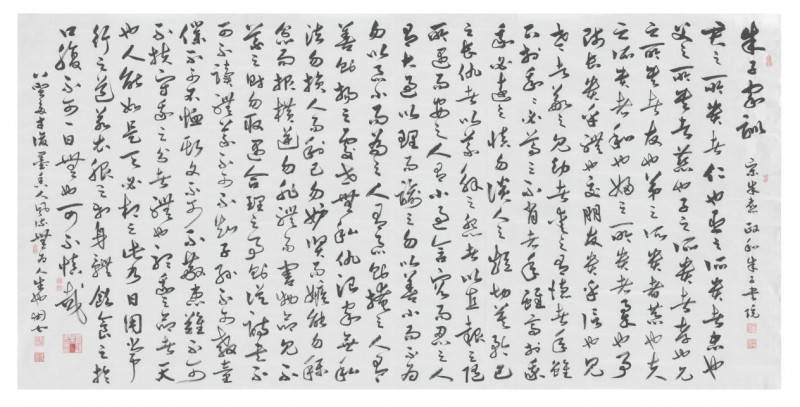 朱子家訓
宋朱熹 政和朱子書院
君之所貴者仁也臣之所貴者忠也
父之所貴者慈也子之所貴者孝也兄
之所貴者友也弟之所貴者恭也夫
之所貴者和也婦之所貴者柔也事
師長貴乎禮也交朋友貴乎信也見
老者敬之見幼者愛之有德者年雖
下於我我必尊之不肖者年雖高於我
我必遠之慎勿談人之短切莫矜己
之長仇者以義解之怨者以直報之隨
所遇而安之人有小過含容而忍之人
有大過以理而諭之勿以善小而不為
勿以惡小而為之人有惡則掩之人有
善則揚之處世無私仇治家無私
法勿損人而利己勿妒賢而嫉能勿稱
忿而報橫逆勿非禮而害物命見不
義之財勿取遇合理之事則從詩書不
可不讀禮義不可不知子孫不可不教童
僕不可不恤斯文不可不敬患難不可
不扶守我之分者禮也聽我之命者天
也人能如是天必相之此乃日用常
行之道若衣服之於身體飲食之於
口腹不可一日無也可不慎哉